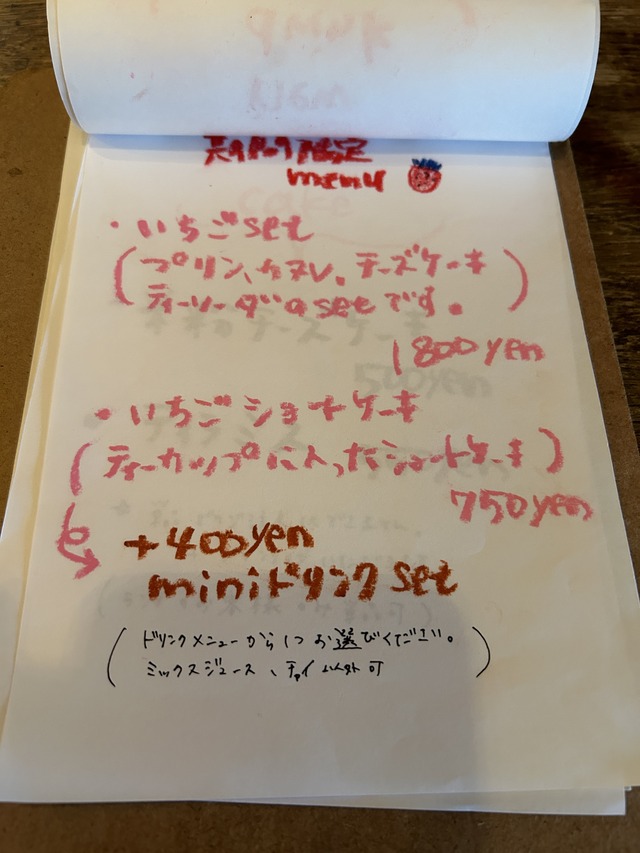 限定
menu
・いちごset
(プリン、カヌレ、チーズケーキ
ティーソーダのsetです。)
1800yen
・いちごショートケーキ
(ティーカップに入ったショートケーキ)
750yen
+400yen
miniドリンクset
(ドリンクメニューから1つお選びください。
ミックスジュース、チャイ以外可)